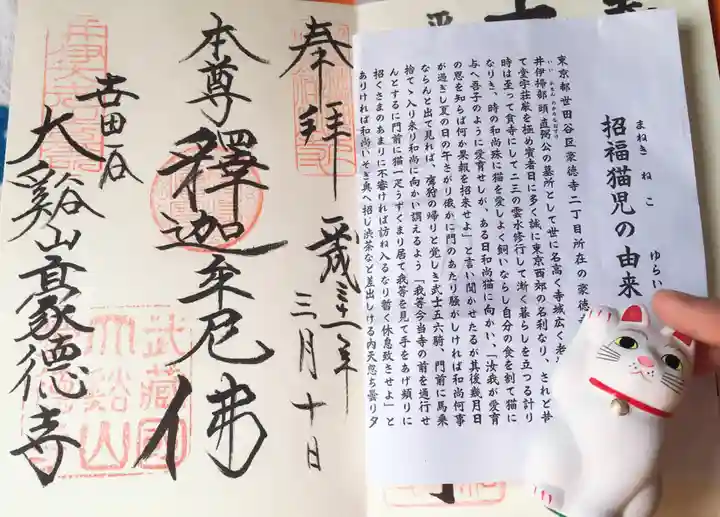 招福猫児の由来
まねき ねこ ゆらい
東京都世田谷区豪徳寺二丁目所在の豪徳
井伊掃部頭直弼公の墓所として世に名高く寺域広く老
いい かもんのかみなおすけ
て堂宇荘厳を極め賽者日に多く誠に東京西郊の名刹なり、されど昔
時は至って貧寺にして二三の雲水修行して漸く暮らしを立つる計り
なりき、時の和尚殊に猫を愛しよく飼いならし自分の食を割て猫に
与へ吾子のように愛育せしが、ある日和尚猫に向かい、「汝我が愛育
の恩を知らば何か果報を招来せよ」と言い聞かせたるが其後幾月日
が過ぎし夏の日の午さがり俄かに門のあたり騒がしければ和尚何事
ならんと出て見れば、鷹狩の帰りと覚しき武士五六騎、門前に馬乗
捨てゝ入り来り和尚に向かい謂えるよう「我等今当寺の前を通行せ
んとするに門前に猫一疋うずくまり居て我等を見て手をあげ頻りに
招くさまのあまりに不審ければ訪ね入るなり暫く休息致させよ」と
ありければ和尚いそぎ奥へ招じ渋茶など差出しける内天忽ち曇り夕
奉拝
三月十日
本尊
釋迦牟尼佛
世田谷
大谿山豪德寺
武藏國
大谿山